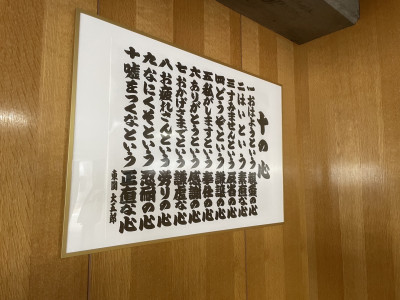 十の心
一おはようという親愛の心
二はいという素直な心
三すみませんという反省の心
四どうぞという謙譲の心
五私がしますという奉仕の心
六ありがとうという感謝の心
七おかげさまでという謙虚な心
八お疲れさんという労りの心
九なにくそという忍耐の心
十嘘をつくなという正直な心
東関 大五郎